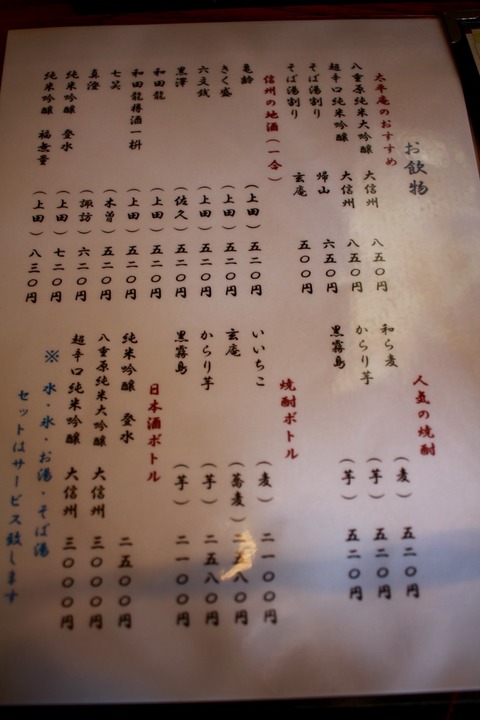 お飲物
太平庵のおすすめ
八重原純米大吟醸 大信州 八五〇円
超辛口純米吟醸 大信州 八五〇円
そば湯割り 帰山 六五〇円
そば湯割り 玄庵 五〇〇円
信州の地酒(一合)
亀齢 (上田) 五二〇円
きく盛 (上田) 五二〇円
六文銭 (上田) 五二〇円
黒澤 (佐久) 五二〇円
和田龍 (上田) 五二〇円
和田龍樽酒一枡 (上田) 五二〇円
七笑 (木曽) 五二〇円
真澄 (諏訪) 六二〇円
純米吟醸 登水 (上田) 七二〇円
純米吟醸 福無量 (上田) 八三〇円
人気の焼酎
和ら麦 (麦) 五二〇円
からり芋 (芋) 五二〇円
黒霧島 (芋) 五二〇円
焼酎ボトル
いいちこ (麦) 二一〇〇円
玄庵 (蕎麦) 二五八〇円
からり芋 (芋) 二五八〇円
黒霧島 (芋) 二一〇〇円
日本酒ボトル
純米吟醸 登水 二五〇〇円
八重原純米大吟醸 大信州 三〇〇〇円
超辛口純米吟醸 大信州 三〇〇〇円
※ 水・氷・お湯・そば湯
セットはサービス致します